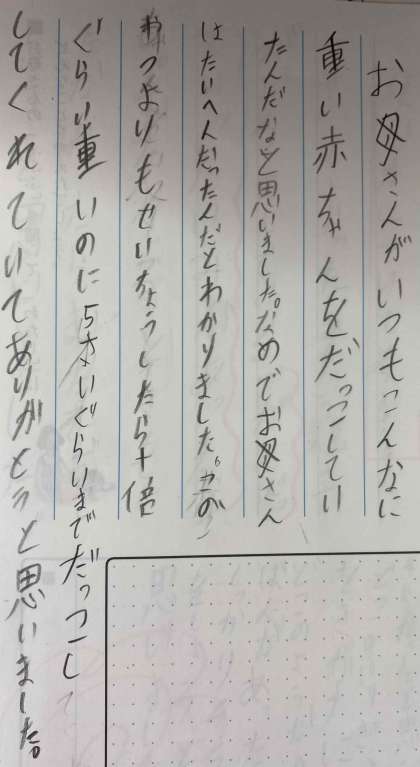 お母さんがいつもこんなに
重い赤ちゃんをだっこしてい
たんだなと思いました。なのでお母さん
はたいへんだったんだとわかりました。この
やつよりもせいちょうしたら十倍
ぐらい重いのに5さいぐらいまでだっこして
してくれていてありがとうと思いました。